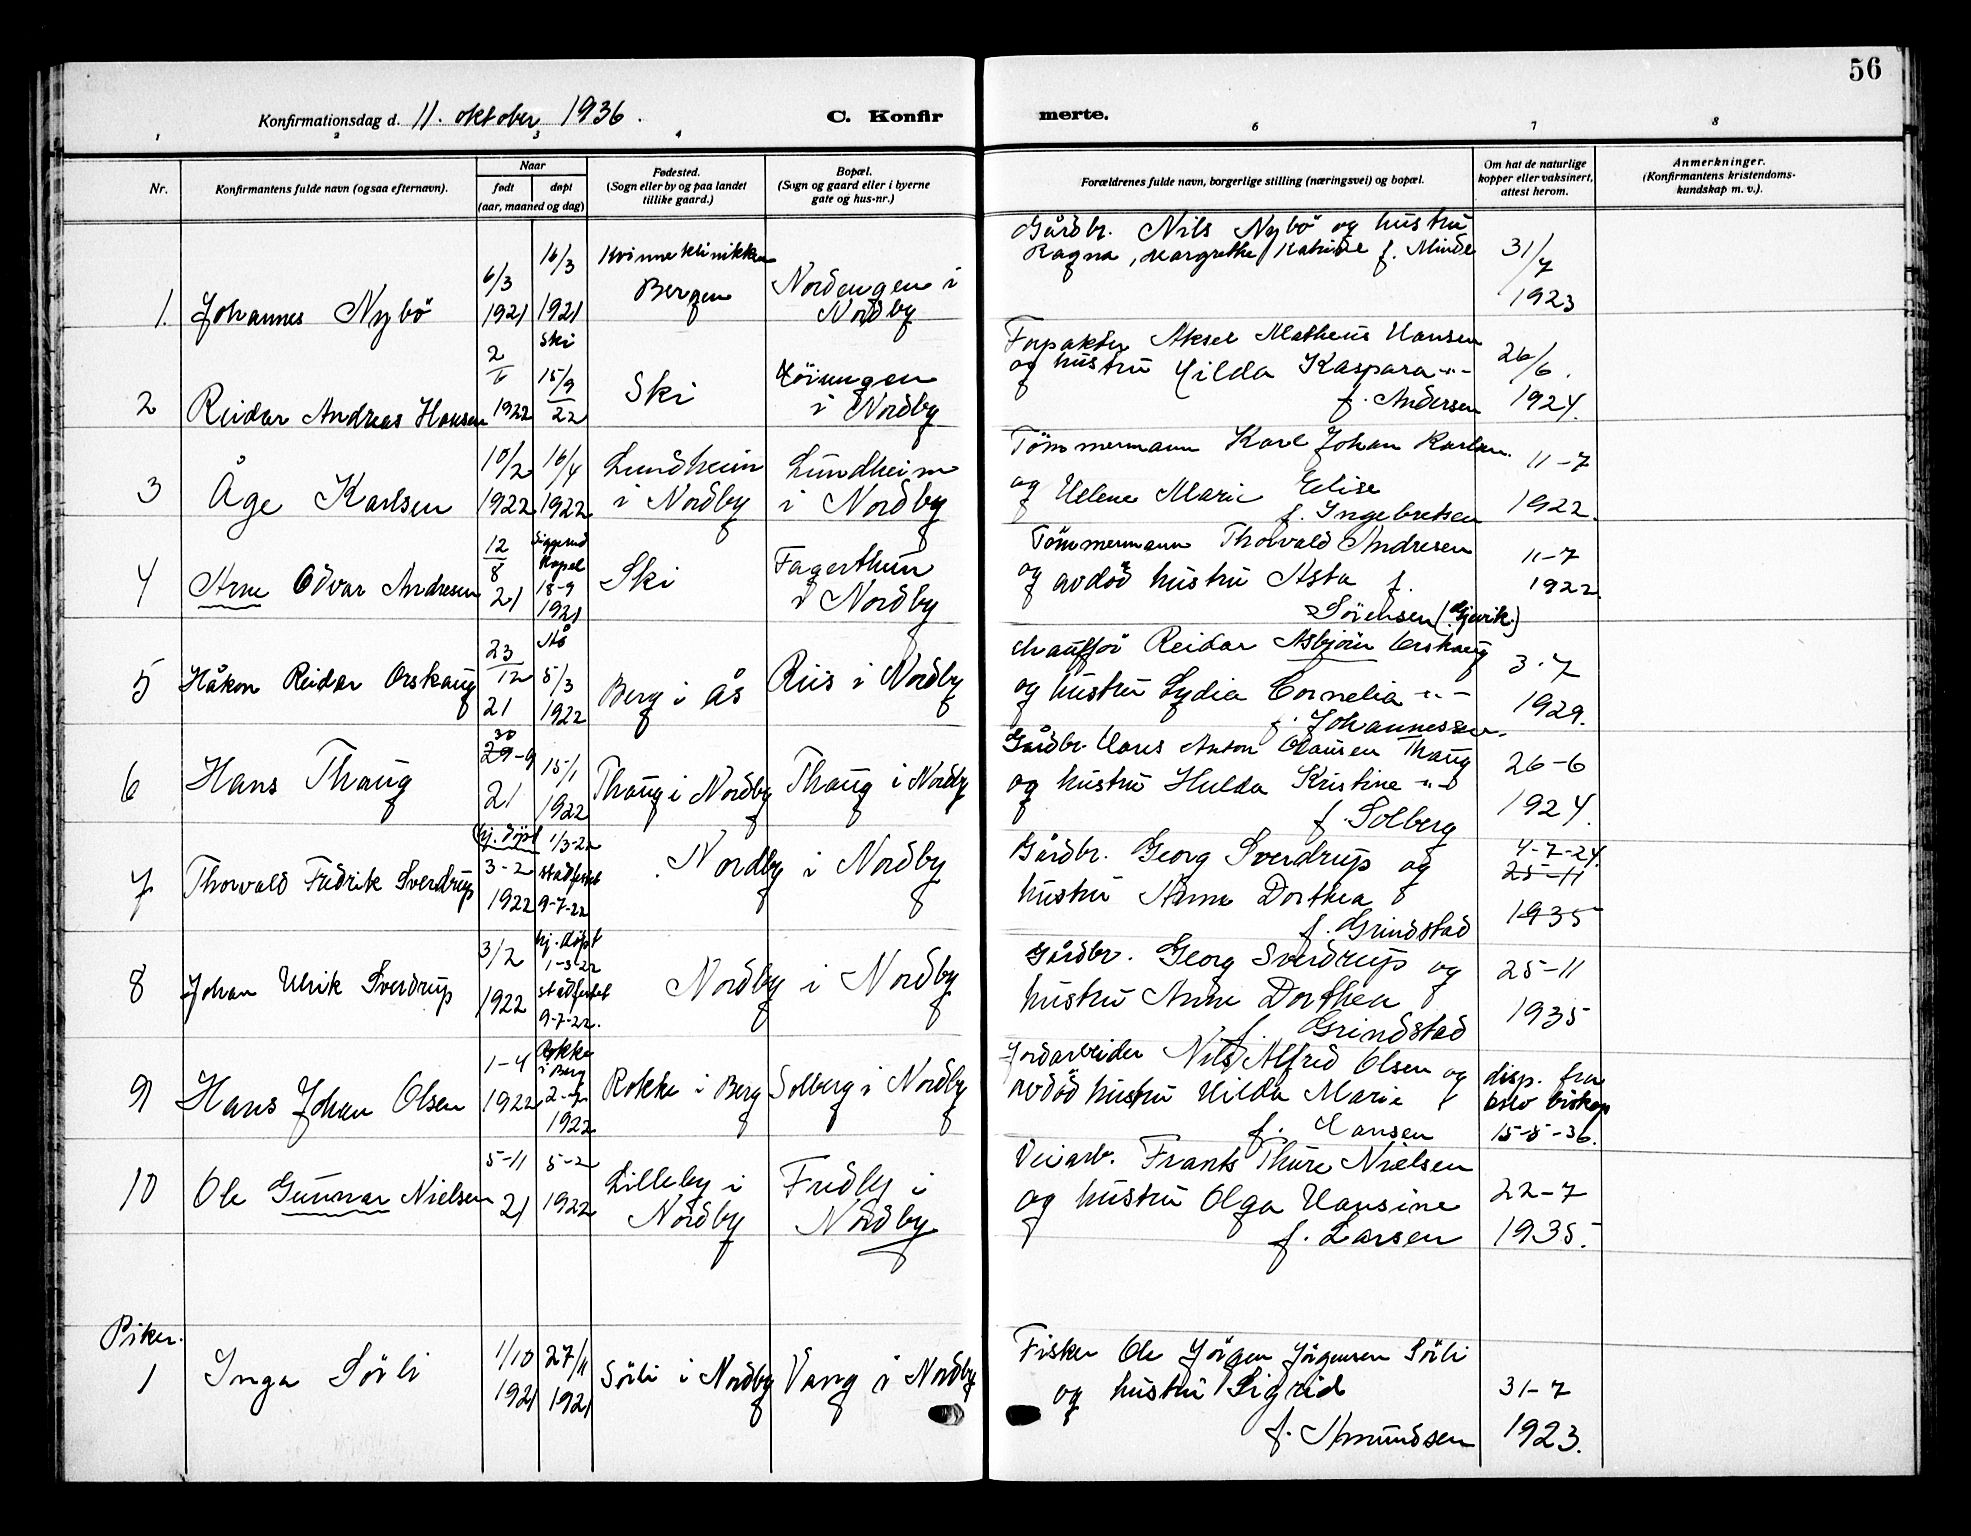 56
Konfirmationsdag d. 11. oktober 1936.
C. Konfirmerte.
1 2 3 4 6 7 8
Nr.
Konfirmantens fulde navn (ogsaa efternavn).
Naar
født
døpt
(aar, maaned og dag)
Fødested.
(Sogn eller by og paa landet
tillike gaard.)
Bopæl.
(Sogn og gaard eller i byerne
gate og hus-nr.)
Forældrenes fulde navn, borgerlige stilling (næringsvei) og bopæl.
Om hat de naturlige
kopper eller vaksinert,
attest herom.
Anmerkninger.
(Konfirmantens kristendoms-
kundskap m. v.).
1. Johannes Nybö
6/3
1921
16/3
1921
Kvinneklinikken
Bergen
Nordengen i
Nordby
Gårdbr. Nils Nybö og hustru
Ragna, Margrethe Katrine f. Minde
31/7
1923
2 Reidar Andreas Hansen
2/6
1922
Ski
15/9
22
Ski
i Nordby
Forpakter Aksel Matheus Hansen
og hustru Hilda Kaspara -"-
f. Andersen
26/6.
1924.
3 Åge Karlsen
10/2
1922
16/4
1922
Lundheim
i Nordby
Lundheim
i Nordby
Tömmermann Karl Johan Karlsen
og Helene Marie Elise
f. Ingebretsen
11-7
1922.
4 Arne Odvar Andresen
12/8
21
Siggerud
Kapel
18-9
1921
Ski
Fagerthun
i Nordby
Tömmermann Thorvald Andresen
og avdöd hustru Asta f.
Sörensen (Gjerik.)
11-7
1922.
5 Håkon Reidar Orskaug
23/12
21
Ås
5/3
1922
Berg i Ås
Riis i Nordby
chaufför Reidar Asbjörn Orskaug
og hustru Lydia Cornelia -"-
f. Johannessen.
3.7
1929.
6 Hans Thaug
30
29-9
21
15/1
1922
Thaug i Nordby
Thaug i Nordby
Gårdbr. Hans Anton Olausen Thaug
og hustru Hulda Kristine -"-
f. Solberg
26-6
1924.
7 Thorvald Fredrik Sverdrup
hj. döpt
3-2
1922
1/3-22
stadfestet
9-7-22
Nordby i Nordby
Gårdbr. Georg Sverdrup og
hustru Anna Dorthea
f. Grindstad
4-7-24.
25-11
1935
8 Johan Ulrik Sverdrup
3/2
1922
hj. döpt
1-3-22
stadfestet
9-7-22.
Nordby i Nordby
Gårdbr. Georg Sverdrup og
hustru Anna Dorthea
f. Grindstad
25-11
1935
9 Hans Johan Olsen
1-4
1922
Rokke
i Berg
1922
Rokke i Berg
Solberg i Nordby
Jordarbeider Nils Alfred Olsen og
avdöd hustru Hilda Marie
f. Hansen
disp. fra
Oslo biskop
15-8-36.
10 Ole Gunnar Nielsen
5-11
21
5-2
1922
Lilleby i
Nordby
Fredly i
Nordby
Veiarb. Frants Thure Nielsen
og hustru Olga Hansine
f. Larsen
22-7
1935.
Piker.
1 Inga Sörli
1/10
1921
27/11
1921
Sörli i Nordby
Vang i Nordby
Fisker Ole Jörgen Jörgensen Sörli
og hustru Sigrid
f. Amundsen
31-7
1923.